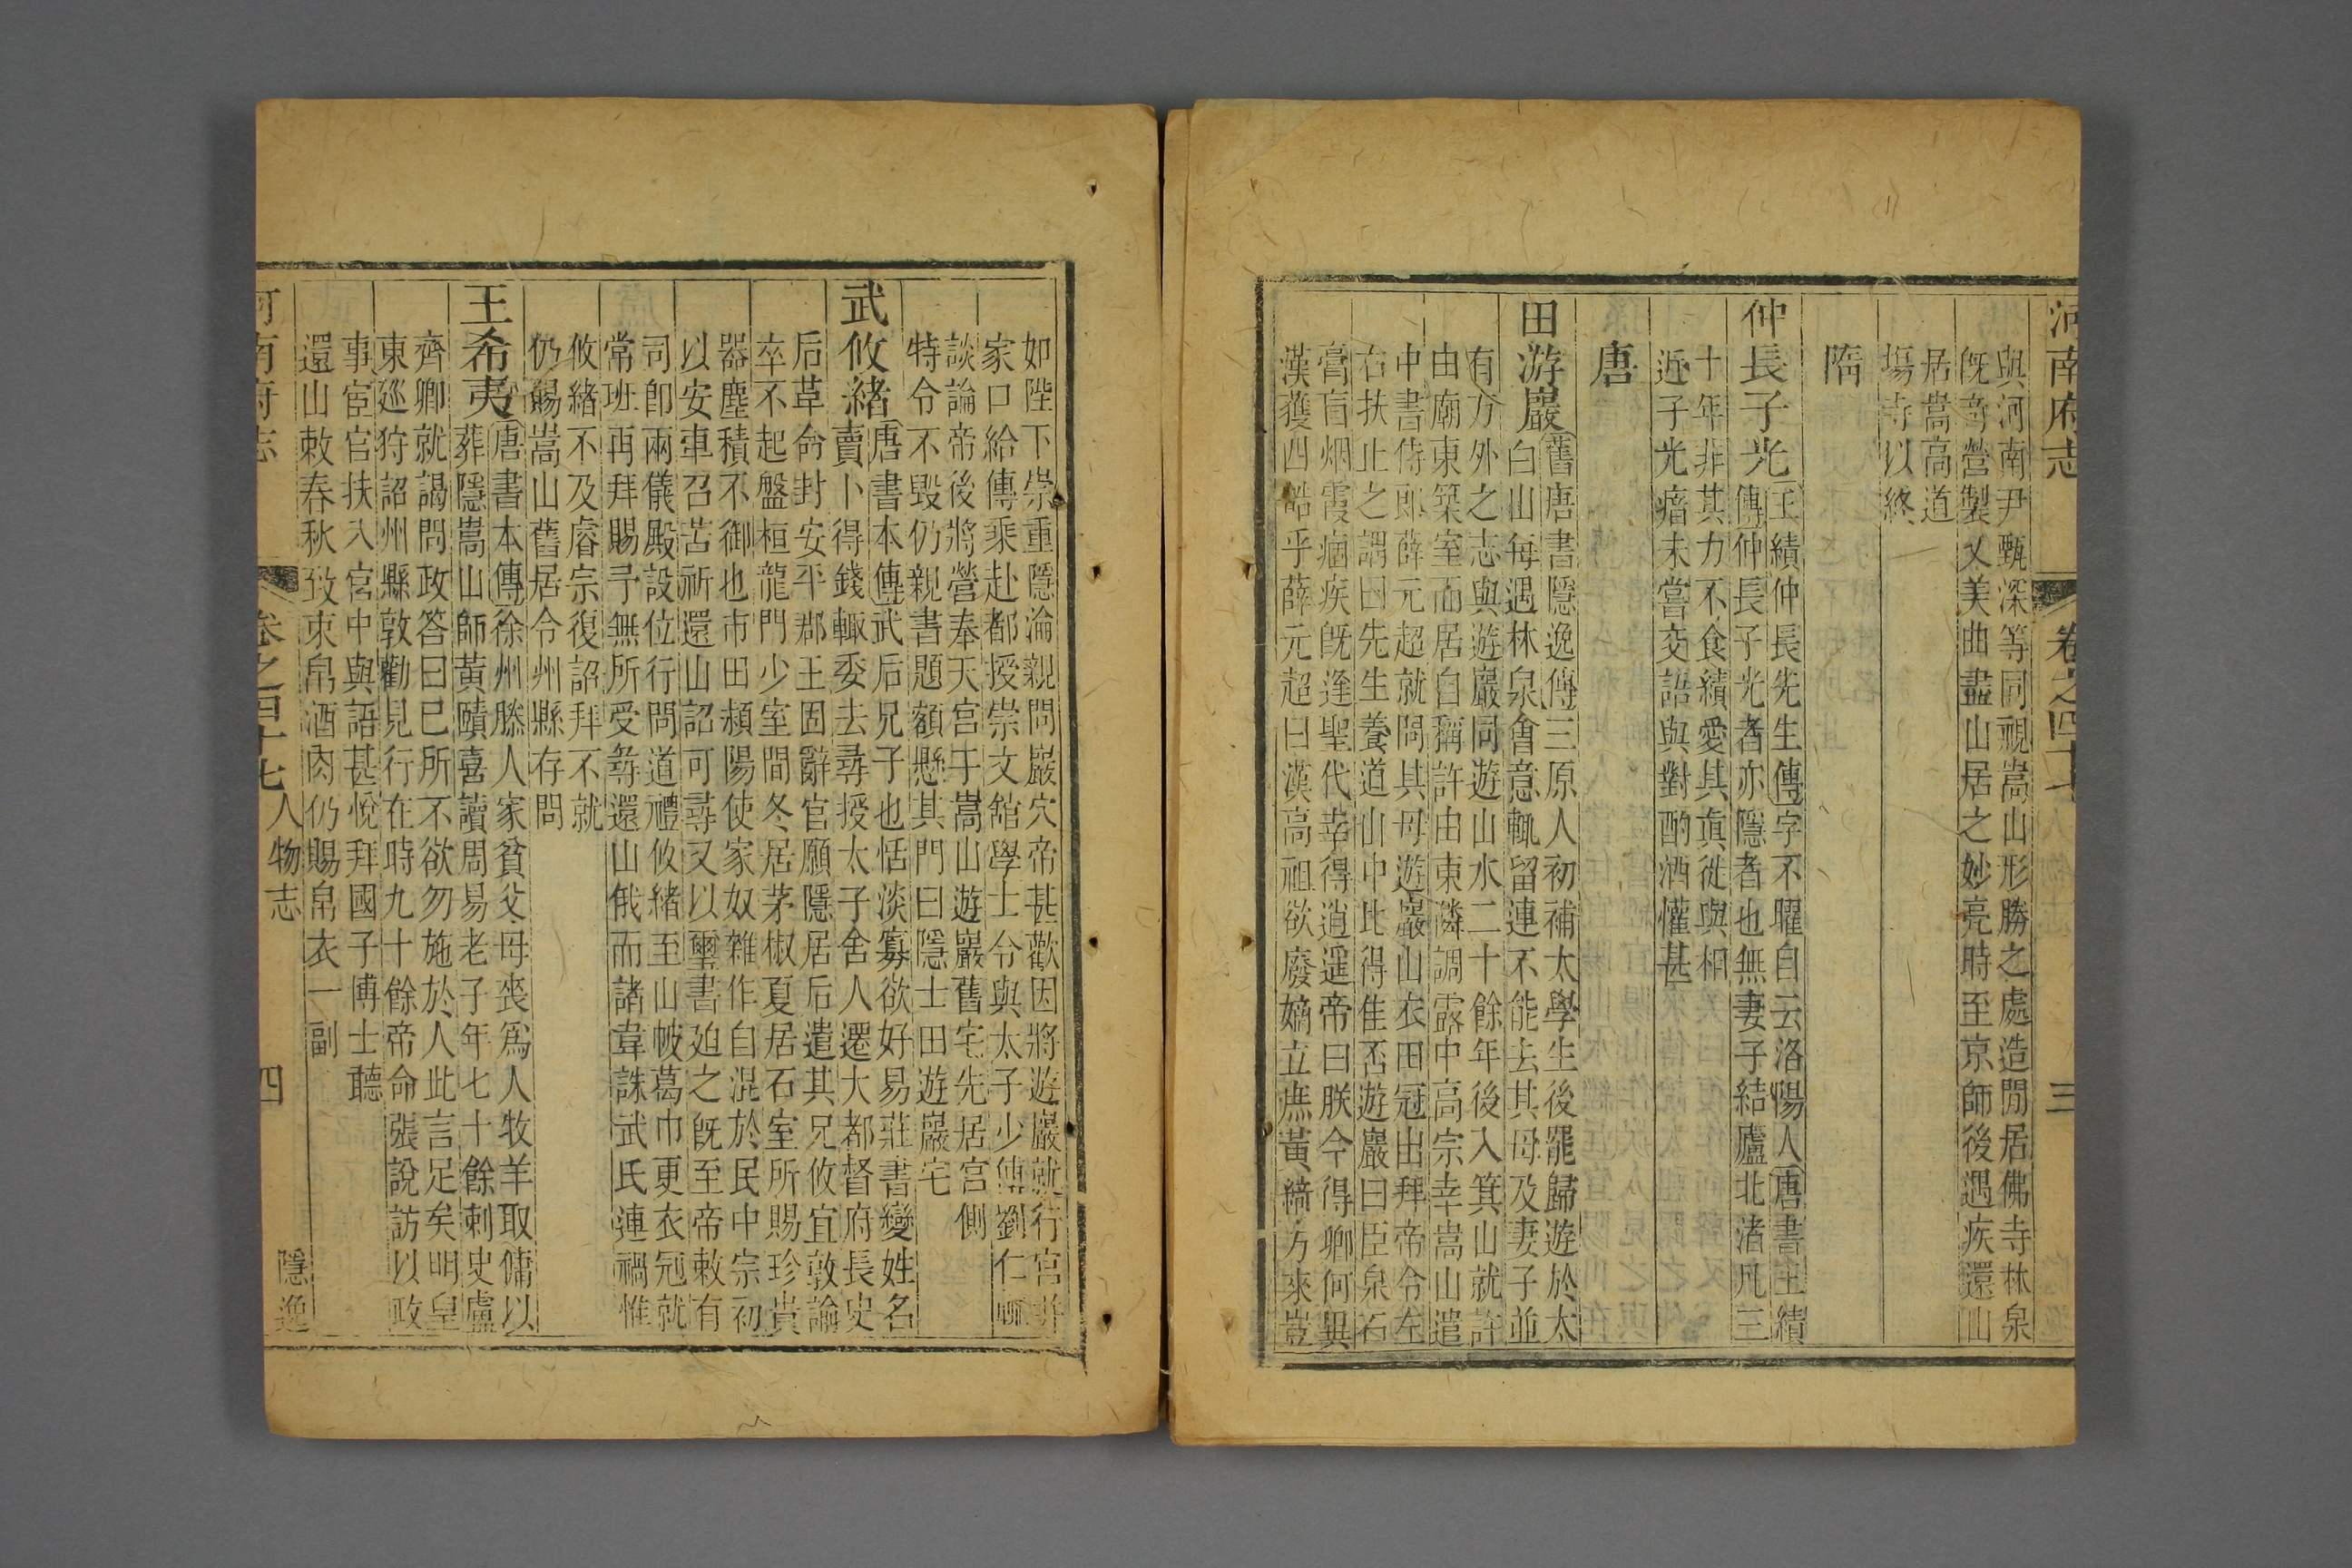 河南府志
卷之四十七
三
與河南尹甄深等同視嵩山形勝之處造閒居佛寺林泉
既奇營製又美曲盡山居之妙亮時至京師後遇疾還山
居嵩高道
塲寺以終
隋
仲長子光
王績仲長先生傳字不曜自云洛陽人唐書王績
傳仲長子光者亦隱者也無妻子結廬北渚凡三
十年非其力不食績愛其眞徙與相
近子光瘖未嘗交語與對酌酒懽甚
唐
田游巖
舊唐書隱逸傳三原人初補太學生後罷歸遊於太
白山每遇林泉會意輒留連不能去其母及妻子並
有方外之志與遊巖同遊山水二十餘年後入箕山就許
由廟東築室而居自稱許由東隣調露中高宗幸嵩山遣
中書侍郎薛元超就問其母遊巖山衣田冠出拜帝令左
右扶止之謂曰先生養道山中比得佳否遊巖曰臣泉石
膏盲烟霞痼疾既逢聖代幸得逍遥帝曰朕今得卿何異
漢獲四皓乎薛元超曰漢高祖欲廢嫡立庶黃綺方來豈
如陛下崇重隱淪親問巖穴帝甚歡因將遊巖就行宮并
家口給傳乘赴都授崇文舘學士令與太子少傅劉仁軌
談論帝後將營奉天宮于嵩山遊巖舊宅先居宮側
特令不毁仍親書題額懸其門曰隱士田遊巖宅
武攸緒
唐書本傳武后兄子也恬淡寡欲好易莊書變姓名
賣卜得錢輒委去尋授太子舍人遷大都督府長史
后革命封安平郡王固辭官願隱居后遣其兄攸宜敦諭
卒不起盤桓龍門少室間冬居茅椒夏居石室所賜珍貴
器塵積不御也市田潁陽使家奴雜作自混於民中宗初
以安車召苦祈還山詔可尋又以璽書廹之旣至帝敕有
司卽兩儀殿設位行問道禮攸緒至山帔葛巾更衣冠就
常班再拜賜予無所受尋還山俄而諸韋誅武氏連禍惟
攸緒不及睿宗復詔拜不就
仍賜嵩山舊居令州縣存問
王希夷
唐書本傳徐州滕人家貧父母喪爲人牧羊取傭以
葬隱嵩山師黃賾喜讀周易老子年七十餘刺史盧
齊卿就謁問政答曰巳所不欲勿施於人此言足矣明皇
東廵狩詔州縣敦勸見行在時九十餘帝命張說訪以政
事宦官扶入宮中與語甚悅拜國子博士聽
還山敕春秋致束帛酒肉仍賜帛衣一副
河南府志
卷之四十七
人物志
四
隱逸